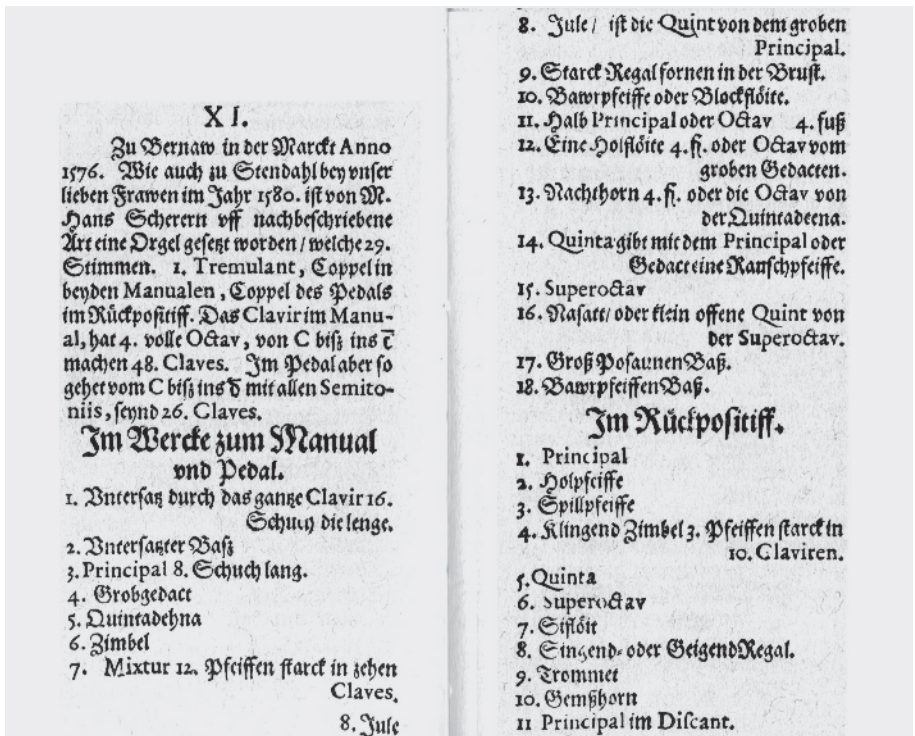 XI.
Zu Bernaw in der Marckt Anno
1576. Wie auch zu Stendahl bey vnser
lieben Frawen im Jahr 1580. ist von M.
Hans Scherern vff nachbeschriebene
Art eine Orgel gesetzt worden / welche 29.
Stimmen. 1. Tremulant, Coppel in
beyden Manualen, Coppel des Pedals
im Rückpositiff. Das Clavir im Manu-
al, hat 4. volle Octav, von C biß ins c̅
machen 48. Claves. Im Pedal aber so
gehet vom C biß ins d̅ mit allen Semito-
niis, seynd 26. Claves.
Im Wercke zum Manual
vnd Pedal.
1. Vntersatz durch das gantze Clavir 16.
Schuch die lenge.
2. Vntersatzter Baß
3. Principal 8. Schuch lang.
4. Grobgedact
5. Quintadehna
6. Zimbel
7. Mixtur 12. Pfeiffen starck in zehen
Claves.
8. Jule
8. Jule / ist die Quint von dem groben
Principal.
9. Starck Regal fornen in der Brust.
10. Bawrpfeiffe oder Blockflöite.
11. Halb Principal oder Octav 4. fuß
12. Eine Holflöite 4. fs. oder Octav vom
groben Gedacten.
13. Nachthorn 4. fs. oder die Octav von
der Quintadeena.
14. Quinta gibt mit dem Principal oder
Gedact eine Rauschpfeiffe.
15. Superoctav
16. Nasatt / oder klein offene Quint von
der Superoctav.
17. Groß Posaunen Baß.
18. Bawrpfeiffen Baß.
Im Rückpositiff.
1. Principal
2. Holpfeiffe
3. Spillpfeiffe
4. Klingend Zimbel 3. Pfeiffen starck in
10. Claviren.
5. Quinta
6. Superoctav
7. Siflöit
8. Singend- oder Geigend Regal.
9. Trommet
10. Gemßhorn
11 Principal im Discant.